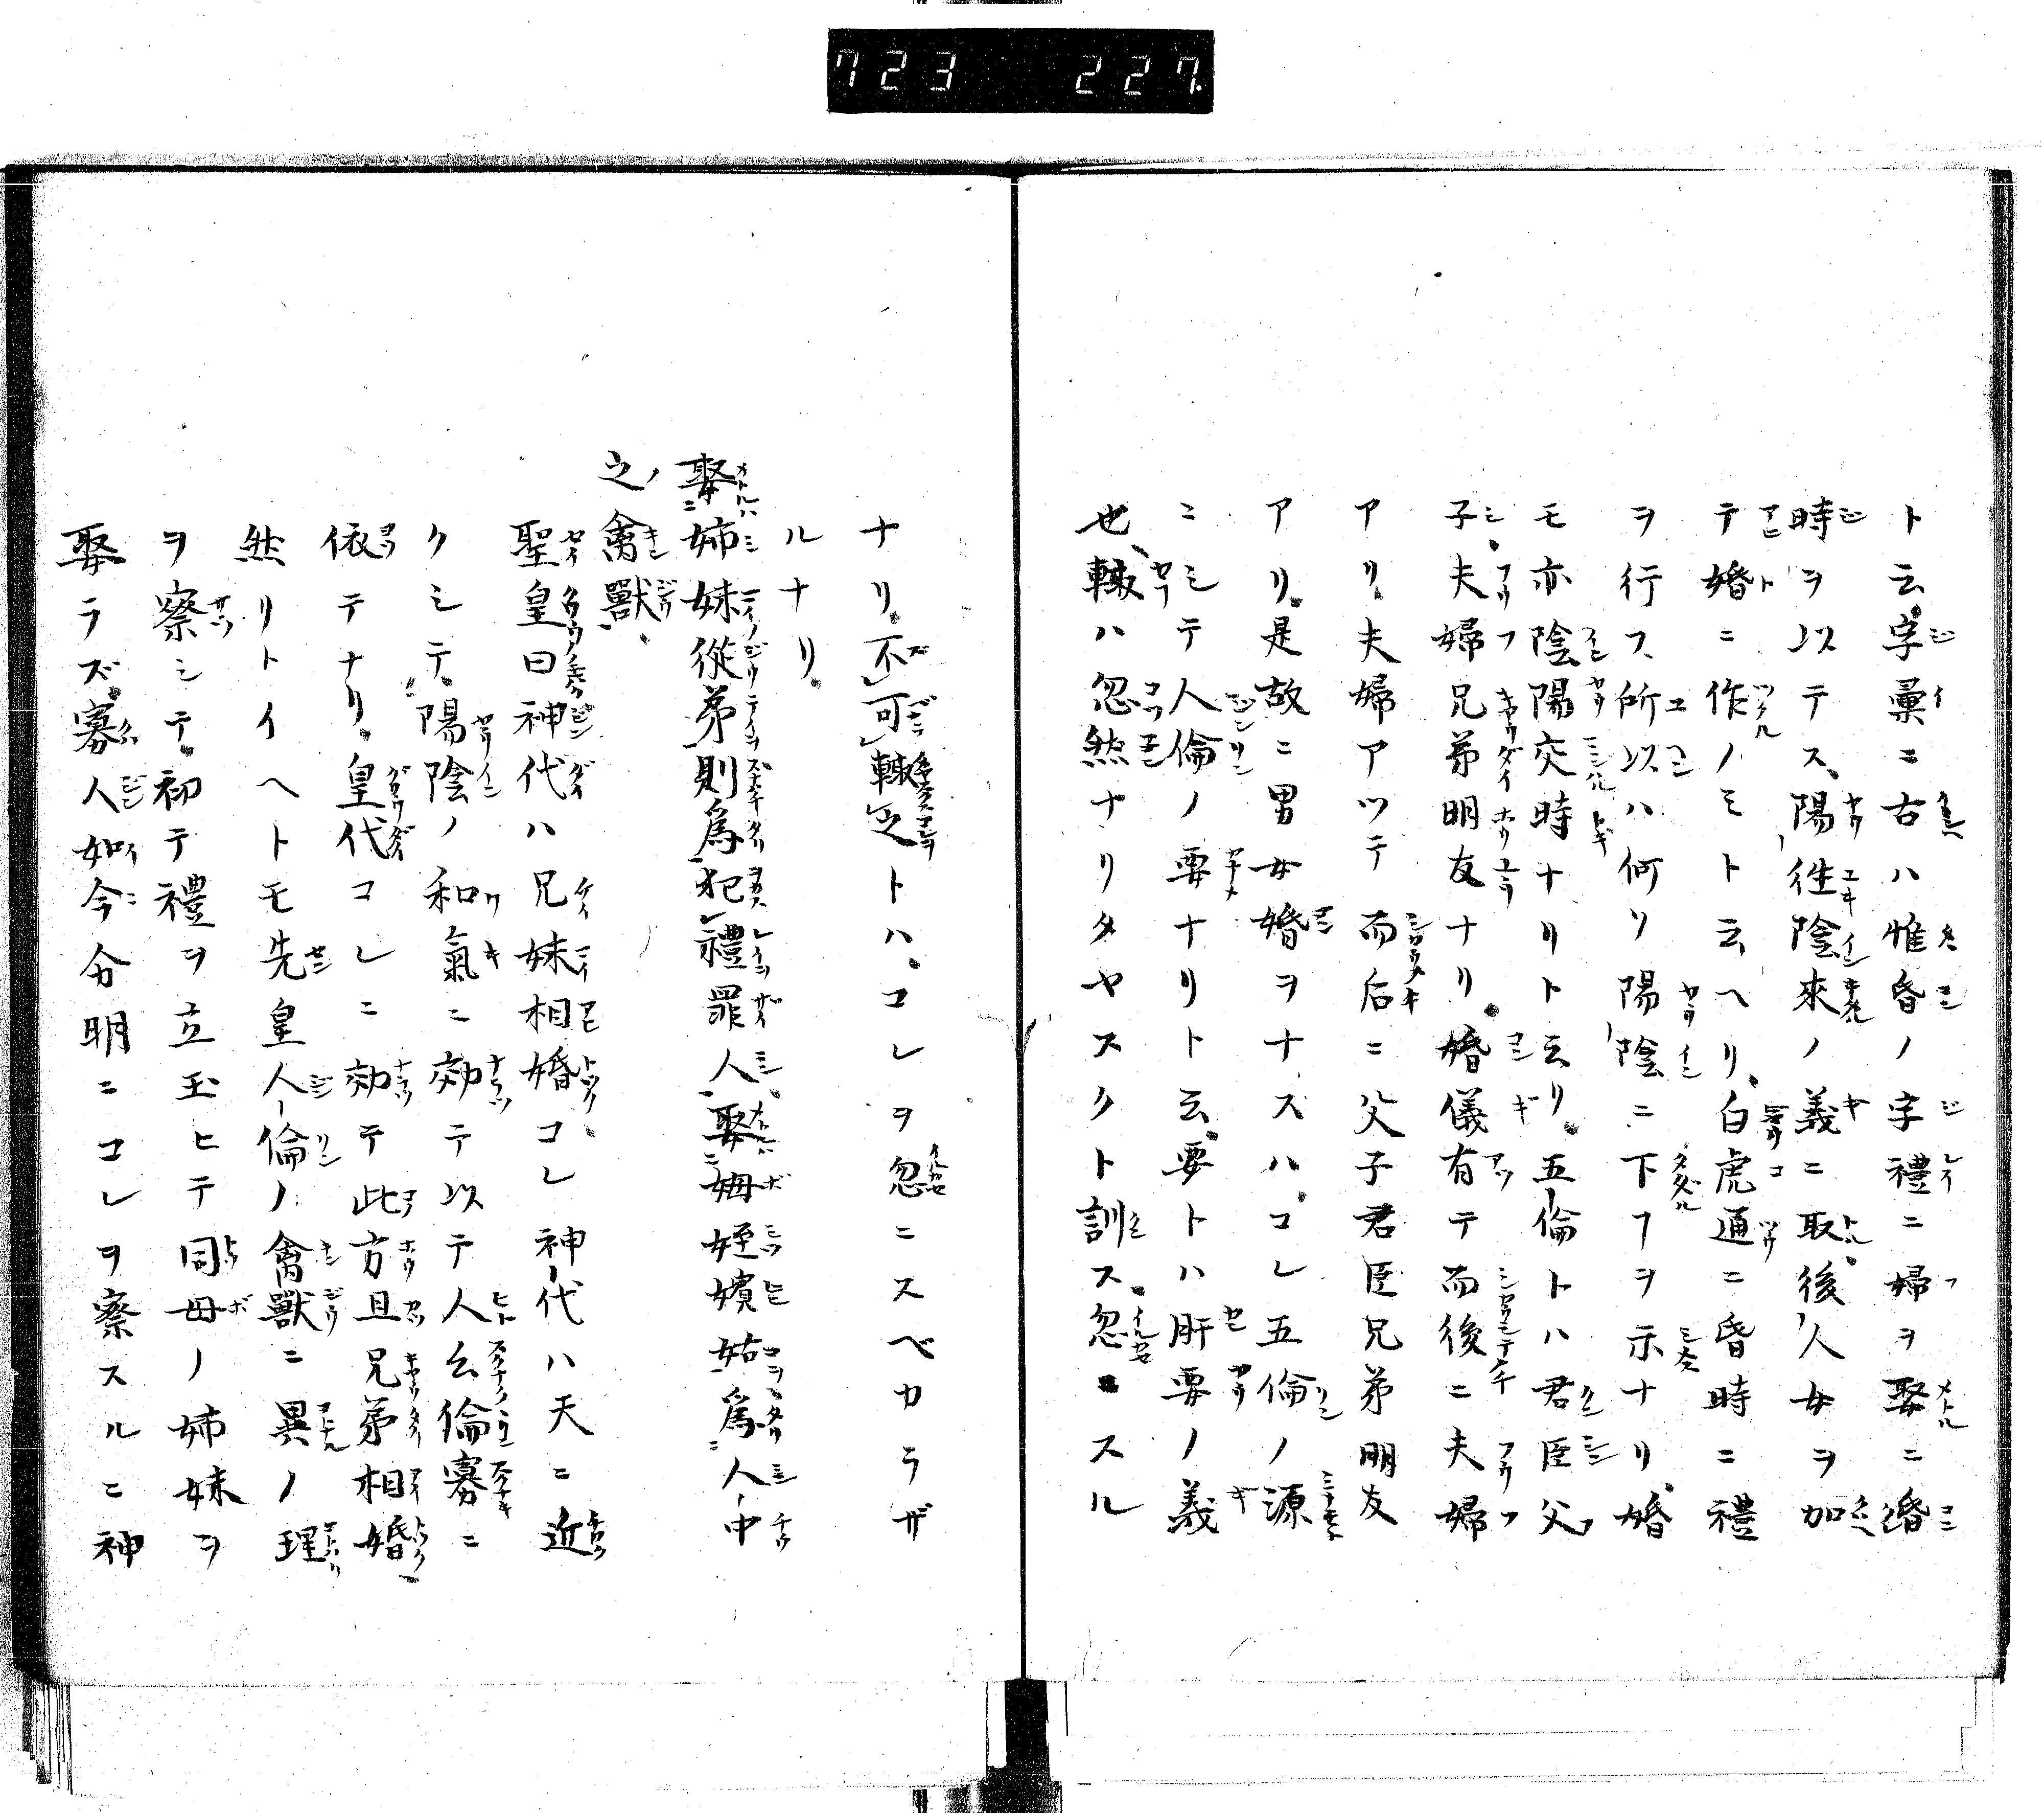 723 227
ト云字彙ニ古ハ惟昏ノ字禮ニ婦ヲ娶ニ婚
時ヲ以テス陽徃陰來ノ義ニ取後人女ヲ加
テ婚ニ作ノミト云ヘリ白虎通ニ昏時ニ禮
ヲ行フ所以ハ何リ陽陰ニ下フヲ示ナリ婚
モ亦陰陽交時ナリト云リ五倫トハ君臣父
子夫婦兄弟朋友ナリ婚儀有テ而後ニ夫婦
アリ夫婦アツテ而后ニ父子君臣兄弟朋友
アリ是故ニ男女婚ヲナスハコレ五倫ノ源
ニシテ人倫ノ要ナリト云要トハ肝要ノ義
也輙ハ忽然ナリタヤスクト訓ス忽ニスル
ナリ不可輙之トハコレヲ忽ニスベカラザ
ルナリ
娶姉妹從弟則爲犯禮罪人娶姆姪嬪姑爲人中
之禽獸
聖皇曰神代ハ兄妹相婚コレ神代ハ天ニ近
クシテ陽陰ノ和氣ニ効テ以テ人幺倫寡ニ
依テナリ皇代コレニ効テ此方且兄弟相婚
然リトイヘトモ先皇人倫ノ禽獸ニ異ノ理
ヲ察シテ初テ禮ヲ立玉ヒテ同母ノ姉妹ヲ
娶ラズ寡人如今分明ニコレヲ察スルニ神